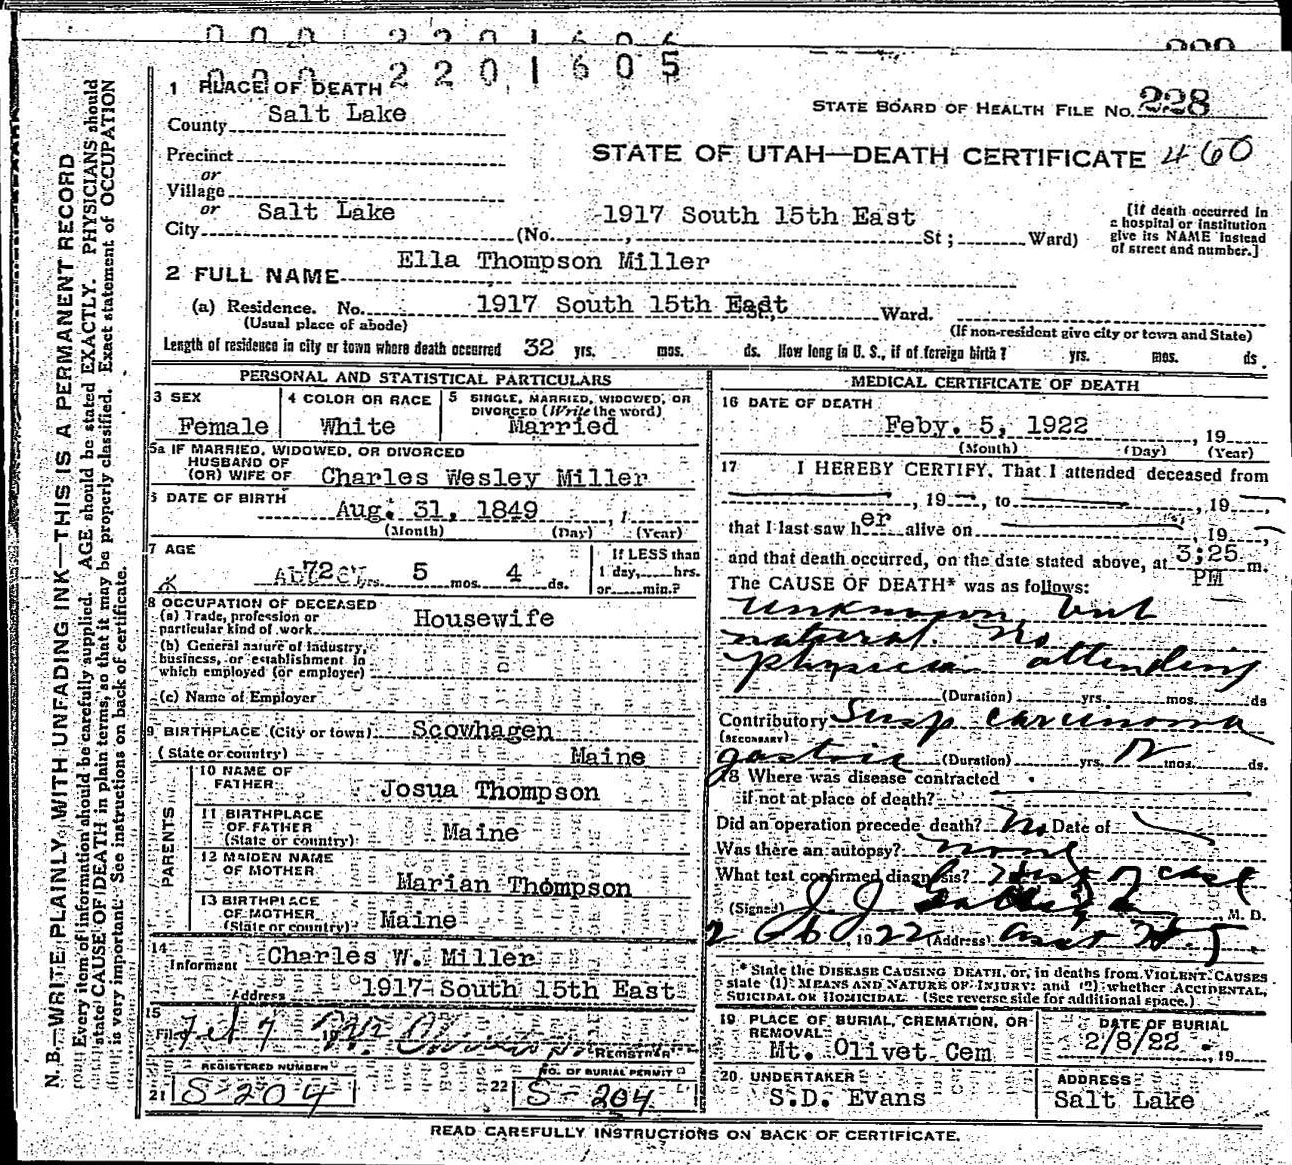 0 0 0 2 2 0 1 6 0 5
1 PLACE OF DEATH
STATE BOARD OF HEALTH FILE No. 228
County Salt Lake
STATE OF UTAH—DEATH CERTIFICATE 460
Precinct
or
Village
or
City Salt Lake (No. 1917 South 15th East St; Ward)
[If death occurred in
a hospital or institution
give its NAME instead
of street and number.]
2 FULL NAME Ella Thompson Miller
(a) Residence. No. 1917 South 15th East St., Ward.
(Usual place of abode)
(If non-resident give city or town and State)
Length of residence in city or town where death occurred 32 yrs. mos. ds. How long in U. S., if of foreign birth? yrs. mos. ds.
PERSONAL AND STATISTICAL PARTICULARS
3 SEX
Female
4 COLOR OR RACE
White
5 SINGLE, MARRIED, WIDOWED, OR
DIVORCED (Write the word)
Married
5a IF MARRIED, WIDOWED, OR DIVORCED
HUSBAND OF
(OR) WIFE OF Charles Wesley Miller
6 DATE OF BIRTH
Aug. 31, 1849 , 1
(Month) (Day) (Year)
7 AGE
72 yrs. 5 mos. 4 ds.
If LESS than
1 day, hrs.
or min.?
8 OCCUPATION OF DECEASED
(a) Trade, profession or
particular kind of work Housewife
(b) General nature of industry,
business, or establishment in
which employed (or employer)
(c) Name of Employer
9 BIRTHPLACE (City or town) Scowhagen
(State or country) Maine
PARENTS
10 NAME OF
FATHER Josua Thompson
11 BIRTHPLACE
OF FATHER
(State or country) Maine
12 MAIDEN NAME
OF MOTHER
Marian Thompson
13 BIRTHPLACE
OF MOTHER
(State or country) Maine
14
Informant Charles W. Miller
Address 1917 South 15th East
15
Filed Feb 7 19
REGISTRAR
REGISTERED NUMBER
21 S-204
NO. OF BURIAL PERMIT
22 S-204
MEDICAL CERTIFICATE OF DEATH
16 DATE OF DEATH
Feby. 5, 1922 , 19
(Month) (Day) (Year)
17 I HEREBY CERTIFY, That I attended deceased from
, 19 , to , 19 ,
that I last saw her alive on , 19 ,
and that death occurred, on the date stated above, at 3;25 m.
PM
The CAUSE OF DEATH* was as follows:
unknown but
natural. No
physician attending
(Duration) yrs. mos. ds
Contributory Susp carcinoma
(SECONDARY)
gastric (Duration) yrs. 12 mos. ds.
18 Where was disease contracted
if not at place of death?
Did an operation precede death? No Date of
Was there an autopsy? none
What test confirmed diagnosis? Hist of case
(Signed) J J , M. D.
2/6, 1922 (Address)
* State the DISEASE CAUSING DEATH, or, in deaths from VIOLENT CAUSES
state (1) MEANS AND NATURE OF INJURY; and (2) whether ACCIDENTAL,
SUICIDAL OR HOMICIDAL. (See reverse side for additional space.)
19 PLACE OF BURIAL, CREMATION, OR
REMOVAL
Mt. Olivet Cem
DATE OF BURIAL
2/8/22 , 19
20 UNDERTAKER
S.D. Evans
ADDRESS
Salt Lake
READ CAREFULLY INSTRUCTIONS ON BACK OF CERTIFICATE.
N. B.—WRITE PLAINLY, WITH UNFADING INK—THIS IS A PERMANENT RECORD
Every item of information should be carefully supplied. AGE should be stated EXACTLY. PHYSICIANS should
state CAUSE OF DEATH in plain terms, so that it may be properly classified. Exact statement of OCCUPATION
is very important. See instructions on back of certificate.